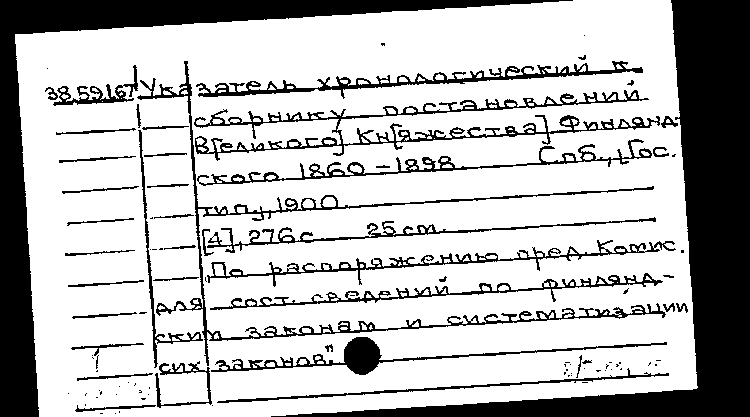 38.59.167 Указатель хронологический к
сборнику постановлений
В[еликого] Кн[яжества] Финлянд-
ского 1860-1898. Спб., Гос.
тип., 1900.
[4], 276 с 25 см.
"По распоряжению пред. Комис.
для сост. сведений по финлянд-
ским законам и систематизации
сих законов."
1